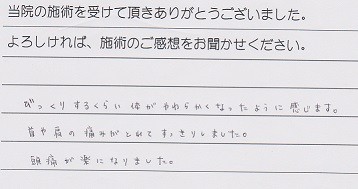 当院の施術を受けて頂きありがとうございました。
よろしければ、施術のご感想をお聞かせください。
びっくりするくらい体がやわらかくなったように感じます。
首や肩の痛みがとれてすっきりしました。
頭痛が楽になりました。